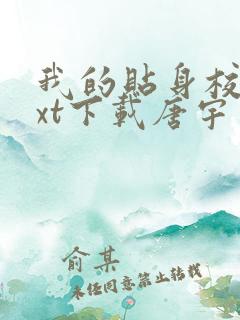 我的贴身校
xt下载唐宇
俞某
未经同意禁止转载